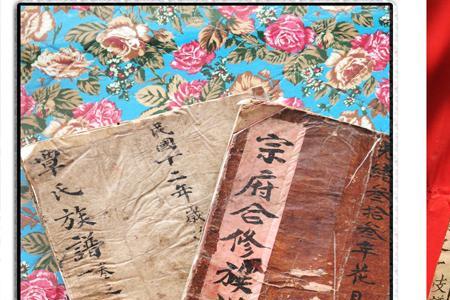 民國十二年歲
覃氏族譜卷之
緒叁拾叁年花月
宗府合修族
支